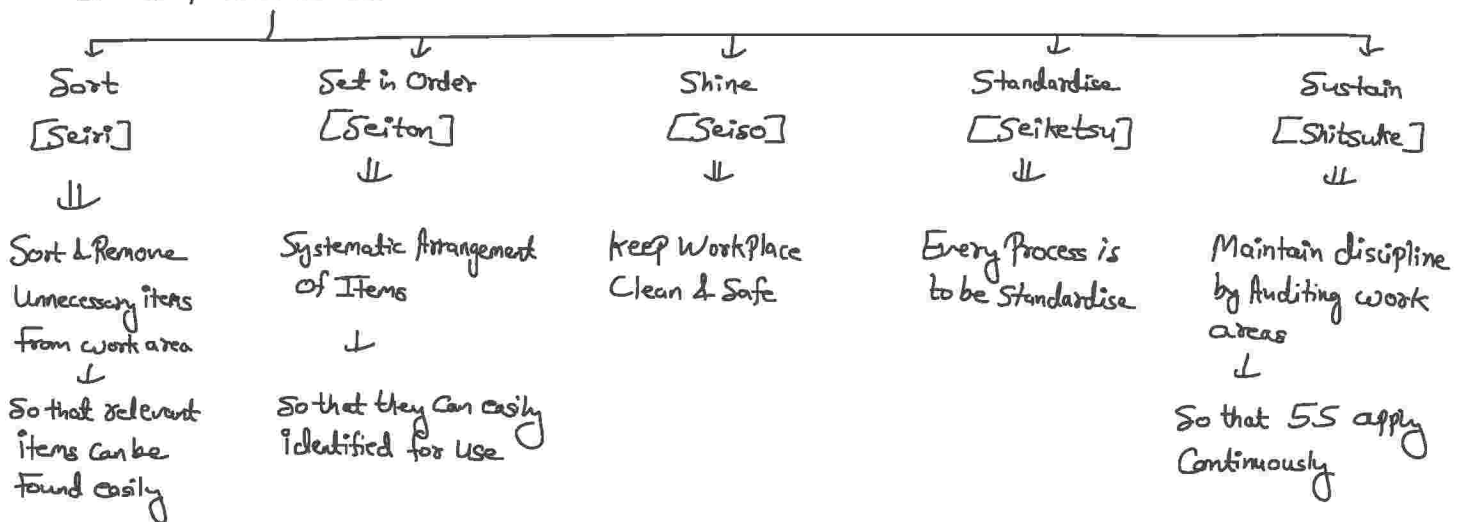 Sort
[Seiri]
Sort & Remove
Unnecessary items
from work area
So that relevant
items can be
Found easily
Set in Order
[Seiton]
Systematic Arrangement
of Items
So that they Can easily
identified for use
Shine
[Seiso]
Keep WorkPlace
Clean & Safe
Standardise
[Seiketsu]
Every Process is
to be Standardise
Sustain
[Shitsuke]
Maintain discipline
by Auditing work
areas
So that 5S apply
Continuously